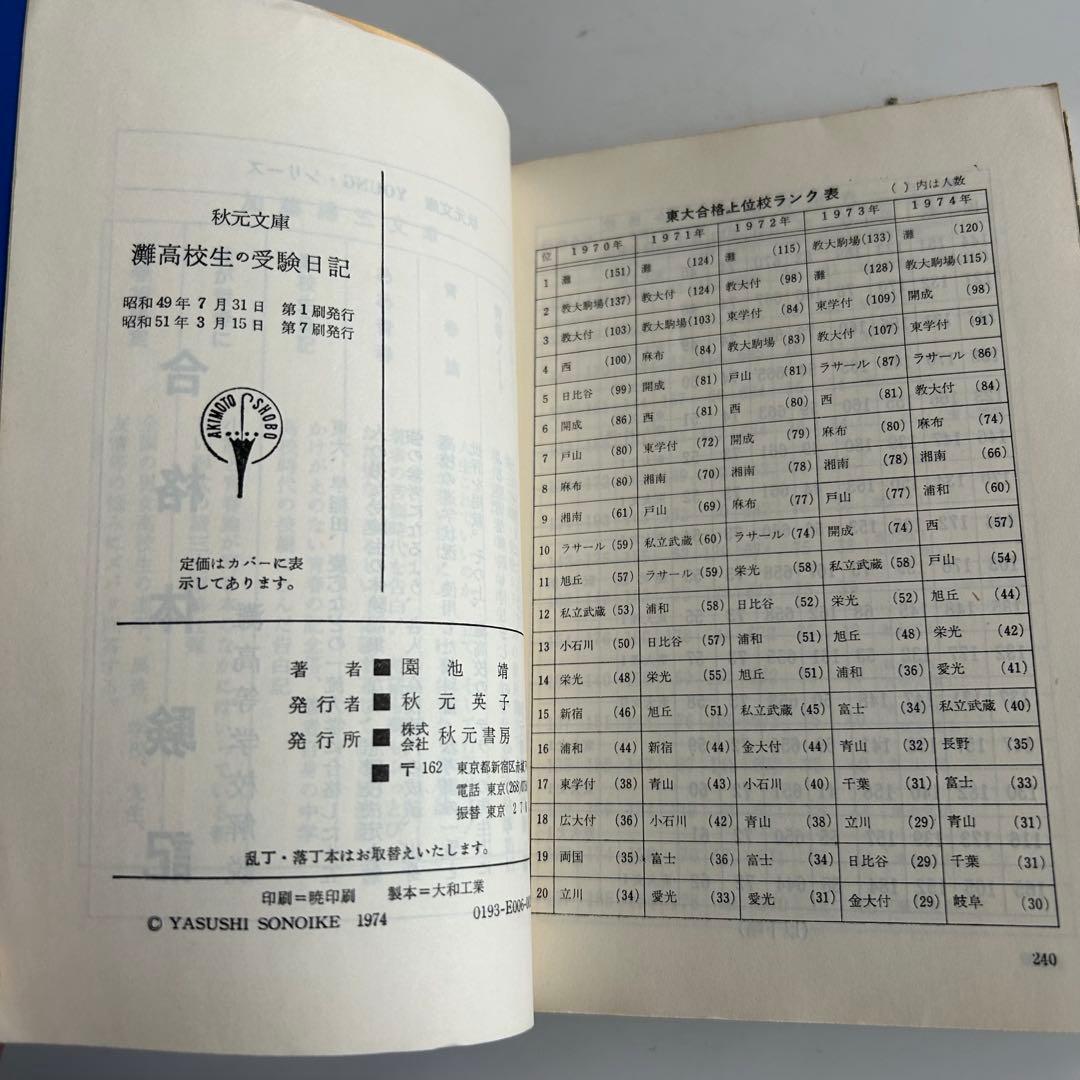 秋元文庫
灘高校生の受験日記
昭和49年7月31日 第1刷発行
昭和51年3月15日 第7刷発行
AKIMOTO SHOBO
定価はカバーに表
示してあります。
著者■園池靖
発行者■秋元英子
発行所■株式会社秋元書房
■〒162 東京都新宿区
電話 東京(268)
振替 東京 27
乱丁・落丁本はお取替えいたします。
印刷=暁印刷 製本=大和工業
0193-E006-0
© YASUSHI SONOIKE 1974
東大合格上位校ランク表 ( )内は人数
位 1970年 1971年 1972年 1973年 1974年
1 灘 (151) 灘 (124) 灘 (115) 教大駒場(133) 灘 (120)
2 教大駒場(137) 教大付 (124) 教大付 (98) 灘 (128) 教大駒場(115)
3 教大付 (103) 教大駒場(103) 東学付 (84) 東学付 (109) 開成 (98)
4 西 (100) 麻布 (84) 教大駒場(83) 教大付 (107) 東学付 (91)
5 日比谷 (99) 開成 (81) 戸山 (81) ラサール (87) ラサール (86)
6 開成 (86) 西 (81) 西 (80) 西 (81) 教大付 (84)
7 戸山 (80) 東学付 (72) 開成 (79) 麻布 (80) 麻布 (74)
8 麻布 (80) 湘南 (70) 湘南 (78) 湘南 (78) 湘南 (66)
9 湘南 (61) 戸山 (69) 麻布 (77) 戸山 (77) 浦和 (60)
10 ラサール (59) 私立武蔵 (60) ラサール (74) 開成 (74) 西 (57)
11 旭丘 (57) ラサール (59) 栄光 (58) 私立武蔵 (58) 戸山 (54)
12 私立武蔵 (53) 浦和 (58) 日比谷 (52) 栄光 (52) 旭丘 (44)
13 小石川 (50) 日比谷 (57) 浦和 (51) 旭丘 (48) 栄光 (42)
14 栄光 (48) 栄光 (55) 旭丘 (51) 浦和 (36) 愛光 (41)
15 新宿 (46) 旭丘 (51) 私立武蔵 (45) 富士 (34) 私立武蔵 (40)
16 浦和 (44) 新宿 (44) 金大付 (44) 青山 (32) 長野 (35)
17 東学付 (38) 青山 (43) 小石川 (40) 千葉 (31) 富士 (33)
18 広大付 (36) 小石川 (42) 青山 (38) 立川 (29) 青山 (31)
19 両国 (35) 富士 (36) 富士 (34) 日比谷 (29) 千葉 (31)
20 立川 (34) 愛光 (33) 愛光 (31) 金大付 (29) 岐阜 (30)
240